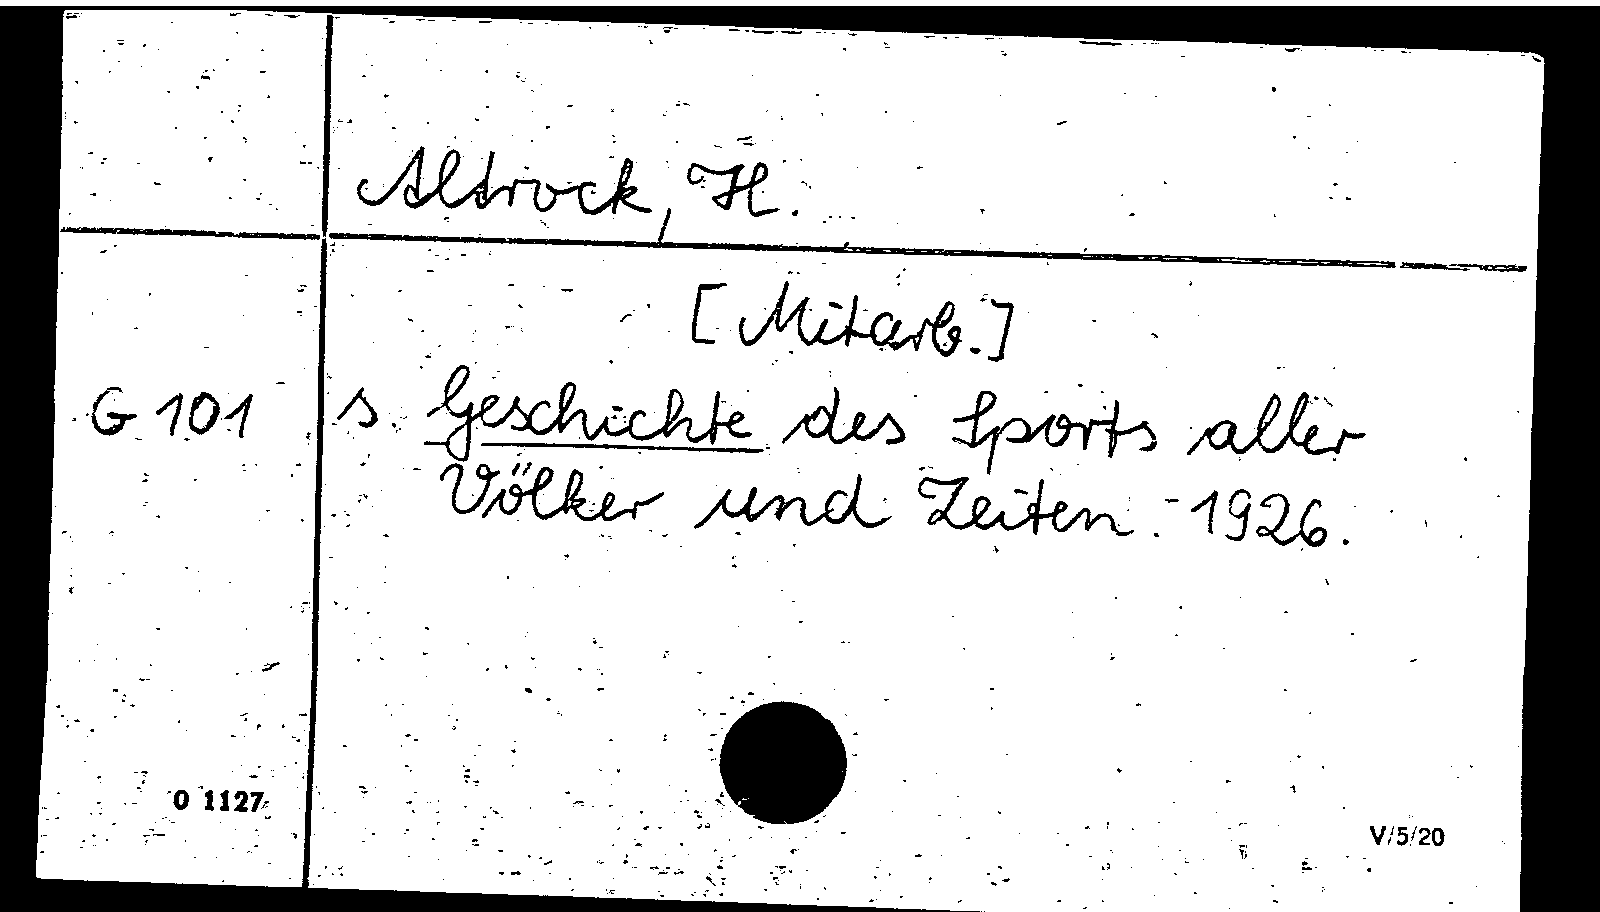 Altrock, H.
[Mitarb.]
G 101 s. Geschichte des Sports aller
Völker und Zeiten. - 1926.
0 1127
V/5/20